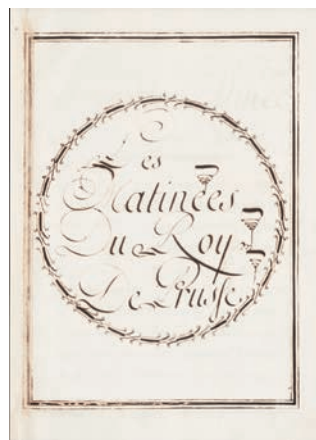 Les
Matinées
Du Roy
De Prusse.